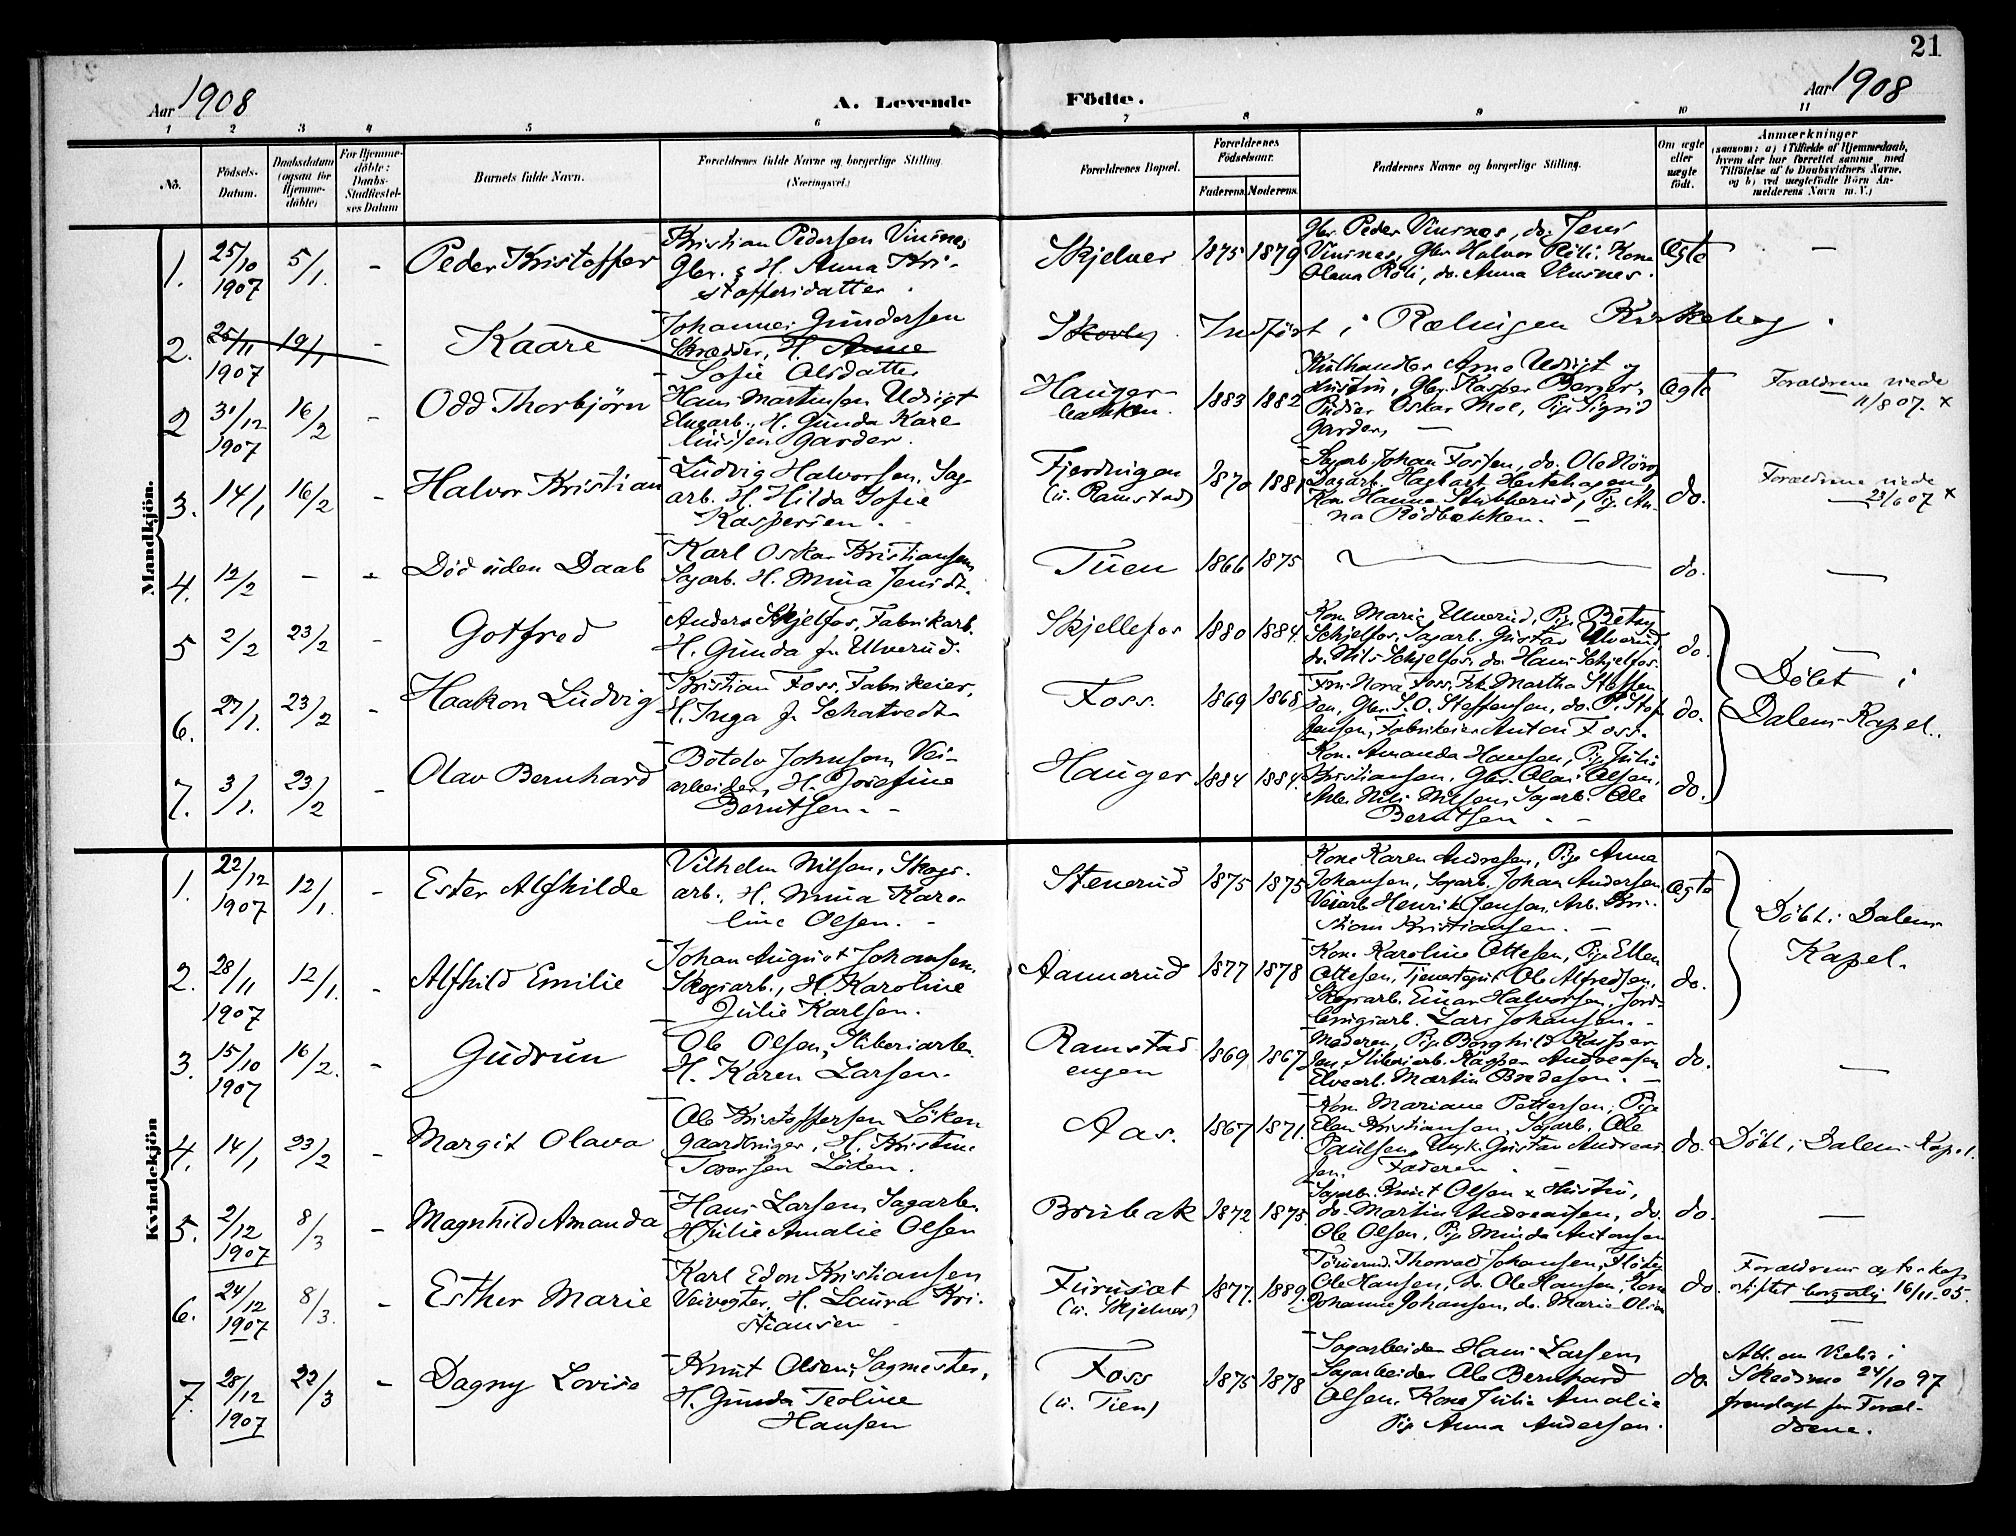 21
Aar 1908
A. Levende
Födte.
Aar 1908
1 2 3 4 5 6 7 8 9 10 11
No.
Födsels-
Datum.
Daabsdatum
(ogsaa for
Hjemme-
döbte)
For Hjemme-
döbte:
Daabs-
Stadfæstel-
ses Datum
Barnets fulde Navn.
Forældrenes fulde Navne og borgerlige Stilling.
(Næringsvei.)
Forældrenes Bopæl.
Forældrenes
Födselsaar.
Faderens. Moderens.
Faddernes Navne og borgerlige Stilling.
Om ægte
eller
uægte
födt.
Anmærkninger
(saasom: a) i Tilfælde af Hjemmedaab,
hvem der har forrettet samme, med
Tilföielse af to Daabsvidners Navne,
og b) ved uægtefödte Börn An-
melderens Navn m. V.)
Mandkjön.
1. 25/10 1907 5/1. - Peder Kristoffer
Kristian Pedersen Vinsnes
Gbr. & H. Anna Kri-
stoffersdatter.
Skjelver 1875 1879
Gbr. Peder Vinsnes, do. Jens
Vinsnes, Gbr. Halvor Röli, Kone
Olava Röli, do. Anna Vinsnes.
Ægte —
2. 25/11 1907 19/1 - Kaare
Johannes Gundersen
Skrædder, H. Anne
Sofie Olsdatter
Skovly Indfört i Rælingen Kirkebog.
2 31/12 1907 16/2 - Odd Thorbjörn
Hans Martinsen Udsigt
Elvearb., H. Gunda Kare
linsen Garder.
Hauger-
bakken. 1883 1882
Kulhandler Arne Udsigt og
Hustru, Gbr. Kasper Berger,
Oskar Moe, Pige Sigrid
Garder, —
Ægte
Forældrene viede
11/8 07. x
3. 14/1 16/2 - Halvor Kristian
Ludvig Halvorsen, Sag-
arb. H. Hilda Sofie
Kaspersen.
Fjerdingen
(u. Ramstad) 1870 1881
Sagarb. Johan Fossen, do. Ole
Sagarb. Hagbart
Kone Hanna Stubberud, Pig. An-
na Rödbakken. —
do.
Forældrene viede
23/6 07 x
4. 12/2 - - Död uden Daab
Karl Oskar Kristiansen
Sagarb. H. Mina Jensdt.
Tuen 1866 1875 do. —
5 2/2 23/2 - Gotfred
Anders Skjelfos, Fabrikarb.
H. Gunda f. Ulverud.
Skjellefos 1880 1884.
Kone Marie Ulverud, Pig. Betsy
Schjelfos, Sagarb. Gustav Ulverud,
do. Nils Schjelfos, do. Hans Schjelfos.
do. —
6. 27/1. 23/2 - Haakon Ludvig
Kristian Foss, Fabrikeier,
H. Inga f. Schatvedt
Foss. 1869 1868
Fru Nora Foss, Frk. Martha Steffen
sen, Gbr. S. O. Steffensen, do. P. Stef
fensen, Fabrikeier Anton Foss.
do.
Döbt i
Dalens Kapel.
7. 3/1. 23/2 - Olav Bernhard
Botolv Johnsen, Vei-
arbeider, H. Josefine
Berntsen. -
Hauger 1884 1884.
Kone Amanda Hansen, Pig. Julie
Kristiansen, Gbr. Olai Olsen,
Arb. Nils Nilsen, Sagarb. Ole
Berntsen —
do.
Kvindekjön
1. 22/12 1907 12/1. - Ester Alfhilde
Vilhelm Nilsen, Skogs-
arb., H. Mina Karo-
line Olsen. -
Stenerud 1875 1875
Kone Karen Andresen, Pige Anna
Johansen, Sagarb. Johan Andersen
Veiarb. Henrik Jensen, Arb. Kri-
stian Kristiansen. —
Ægte
Döbt i Dalens
Kapel.
2. 28/11 1907 12/1. - Alfhild Emilie
Johan August Johansen,
Skogsarb., H. Karoline
Julie Karlsen.
Aamerud 1877 1878
Kone Karoline Ottesen, Pige Ellen
Ottesen, Tjenestegut Ole Alfredsen,
Skogsarb. Einar Halvorsen, Jord-
Lars Johansen. -
do.
3. 15/10 1907 16/2. - Gudrun
Ole Olsen, Sliberiarb.
H. Karen Larsen.
Ramstad
engen 1869 1867
Moderen, Pige Borghild Kasper
sen, Sliberiarb. Kasper Andreasen
Elvearb. Martin Bredesen. —
do. —
4. 14/1 23/2 - Margit Olava
Ole Kristoffersen Löken
gaardbruger, H. Kristine
Löken.
Aas. 1867 1871.
Kone Mariane Pettersen, Pige
Elen Kristiansen, Sagarb. Ole
Paulsen, Ungk. Gustav Andreas
sen. Faderen. —
do. Döbt i Dalens Kapel.
5. 2/12 1907 8/3 - Magnhild Amanda
Hans Larsen, Sagarb.
H. Julie Amalie Olsen
Brubak 1872 1875.
Sagarb. Knut Olsen & Hustru,
do. Martin Andreassen, do.
Ole Olsen, Pige Minda Antonsen
do. —
6. 24/12 1907 8/3. - Esther Marie
Karl Edon Kristiansen
Veivogter, H. Laura Kri-
stiansen -
Furuset
(u. Skjelver) 1877. 1889.
Thorvald Johansen, Flöter
Ole Hansen, do. Ole Hansen, Kone
Johanne Johansen, do. Marie Olsen
do.
Forældrenes ægteskap
stiftet borgerlig 16/11-05.
—
7. 28/12 1907 22/3 - Dagny Lovise
Knut Olsen, Sagmester,
H. Gunda Teoline
Hansen
Foss
(u. Tien) 1875 1878
Sagarbeider Hans Larsen
Sagarbeider Ole Bernhard
Olsen. Kone Julie Amalie
Pig. Anna Andersen.
do.
Att. om Vielse i
Skedsmo 24/10 97
fremlagt for Foræl-
drene.